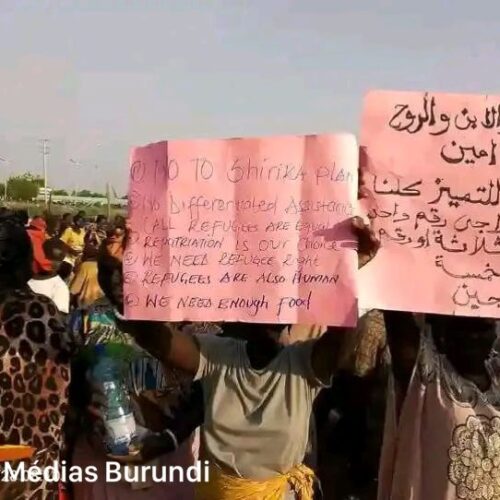 ① NO TO Shirika plan
② NO Differentiated Assistance
(ALL REFUGEES ARE Equal
③ REPATRIATION IS OUR Choice
④ WE NEED REFUGEE Right
⑤ REFUGEES ARE ALSO HUMAN
⑥ WE NEED ENOUGH food
الابن والروح
امين
للتميز كلنا
رقم واحد
ثلاثة او رقم
خمسة
Médias Burundi